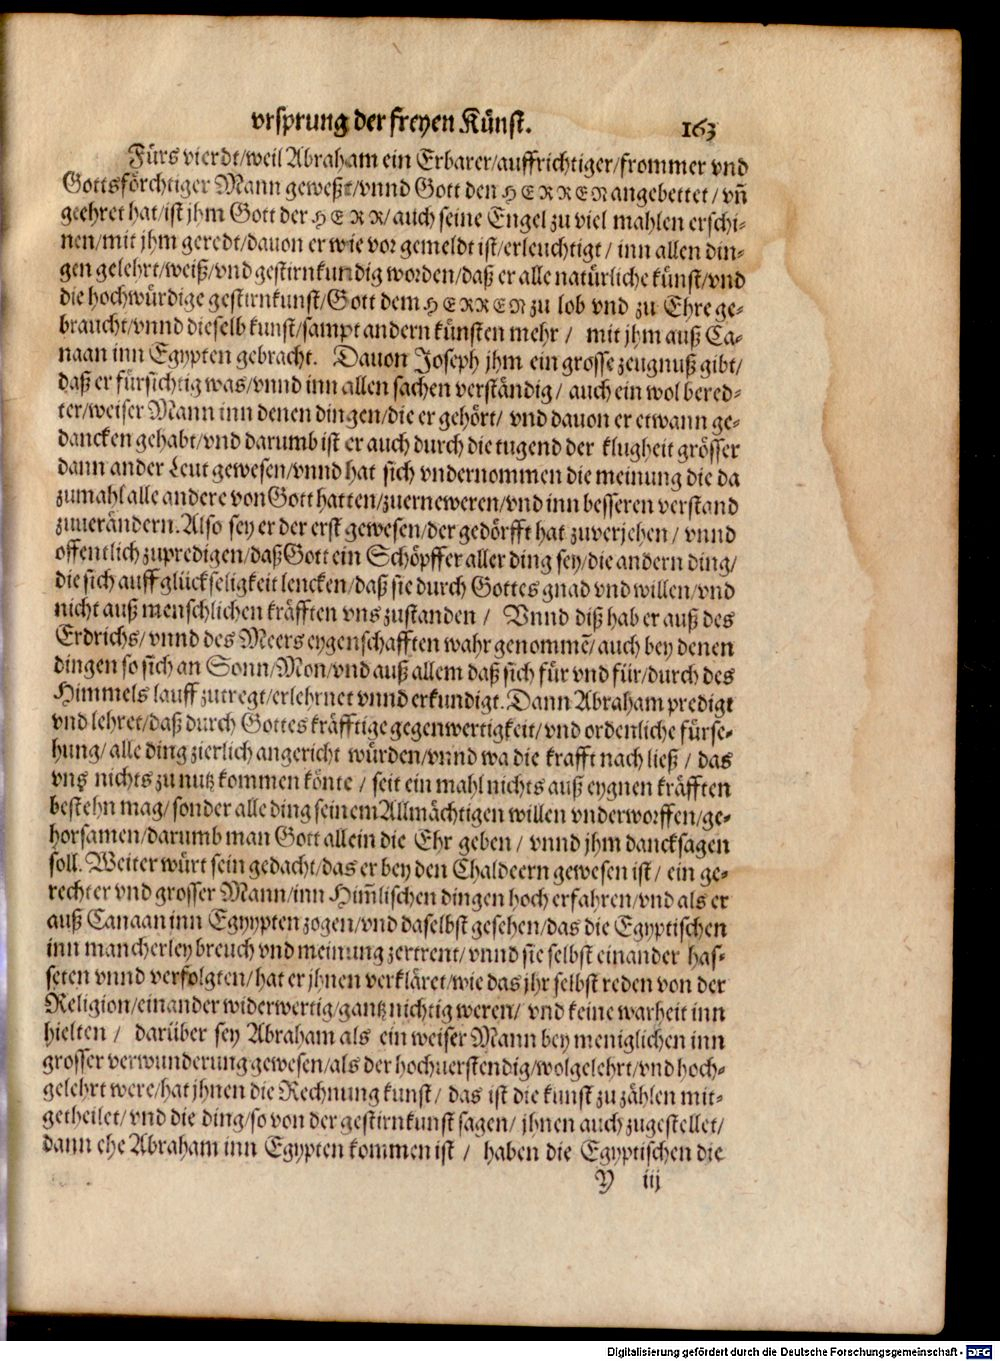 vrsprung der freyen Künst. 163
Fürs vierdt/weil Abraham ein Erbarer/auffrichtiger/frommer vnd
Gottsförchtiger Mann geweßt/vnnd Gott den HERREN angebettet/ vñ
geehret hat/ist jhm Gott der HERR/auch seine Engel zu viel mahlen erschi-
nen/mit jhm geredt/dauon er wie vor gemeldt ist/erleuchtigt/ inn allen din-
gen gelehrt/weiß/vnd gestirnkundig worden/daß er alle natürliche künst/vnd
die hochwürdige gestirnkunst/Gott dem HERREN zu lob vnd zu Ehre ge-
braucht/vnnd dieselb kunst/sampt andern künsten mehr/ mit jhm auß Ca-
naan inn Egypten gebracht. Dauon Joseph jhm ein grosse zeugnuß gibt/
daß er fürsichtig was/vnnd inn allen sachen verständig/ auch ein wol bered-
ter/weiser Mann inn denen dingen/die er gehört/ vnd dauon er etwann ge-
dancken gehabt/vnd darumb ist er auch durch die tugend der klugheit grösser
dann ander Leut gewesen/vnnd hat sich vndernommen die meinung die da
zumahl alle andere von Gott hatten/zuerneweren/vnd inn besseren verstand
zuuerändern. Also sey er der erst gewesen/der gedörfft hat zuverjehen/ vnnd
offentlich zupredigen/daß Gott ein Schöpffer aller ding sey/die andern ding/
die sich auff glückseligkeit lencken/daß sie durch Gottes gnad vnd willen/vnd
nicht auß menschlichen kräfften vns zustanden/ Vnnd diß hab er auß des
Erdrichs/vnnd des Meers eygenschafften wahr genommē/auch bey denen
dingen so sich an Sonn/Mon/vnd auß allem daß sich für vnd für/durch des
Himmels lauff zutregt/erlehrnet vnnd erkundigt. Dann Abraham predigt
vnd lehret/daß durch Gottes kräfftige gegenwertigkeit/vnd ordenliche fürse-
hung/ alle ding zierlich angericht würden/vnnd wa die krafft nach ließ/ das
vns nichts zu nutz kommen könte/ seit ein mahl nichts auß eygnen kräfften
bestehn mag/sonder alle ding seinem Allmächtigen willen vnderworffen/ge-
horsamen/darumb man Gott allein die Ehr geben/ vnnd jhm dancksagen
soll. Weiter würt sein gedacht/das er bey den Chaldeern gewesen ist/ ein ge-
rechter vnd grosser Mann/inn Him̃lischen dingen hoch erfahren/vnd als er
auß Canaan inn Egyypten zogen/vnd daselbst gesehen/das die Egyptischen
inn mancherley breuch vnd meinung zertrent/vnnd sie selbst einander has-
seten vnnd verfolgten/hat er jhnen verkläret/wie das jhr selbst reden von der
Religion/einander widerwertig/gantz nichtig weren/ vnd keine warheit inn
hielten/ darüber sey Abraham als ein weiser Mann bey meniglichen inn
grosser verwunderung gewesen/als der hochuerstendig/wolgelehrt/vnd hoch-
gelehrt were/hat jhnen die Rechnung kunst/ das ist die kunst zu zählen mit-
getheilet/vnd die ding/so von der gestirnkunst sagen/ jhnen auch zugestellet/
dann ehe Abraham inn Egypten kommen ist/ haben die Egyptischen die
Y iij
Digitalisierung gefördert durch die Deutsche Forschungsgemeinschaft - DFG